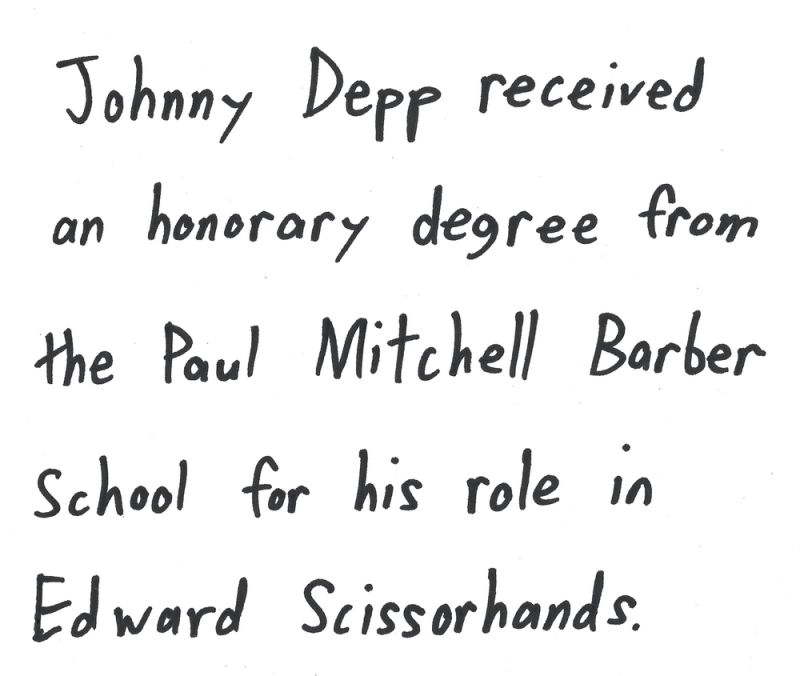 Johnny Depp received
an honorary degree from
the Paul Mitchell Barber
School for his role in
Edward Scissorhands.